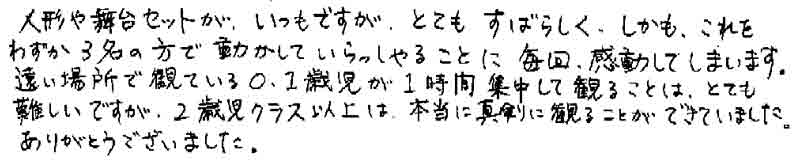 人形や舞台セットが、いつもですが、とても すばらしく、しかも、これを
わずか3名の方で動かしていらっしゃることに毎回、感動してしまいます。
遠い場所で観ている0、1歳児が1時間集中して観ることは、とても
難しいですが、2歳児クラス以上は、本当に真剣に観ることができていました。
ありがとうございました。